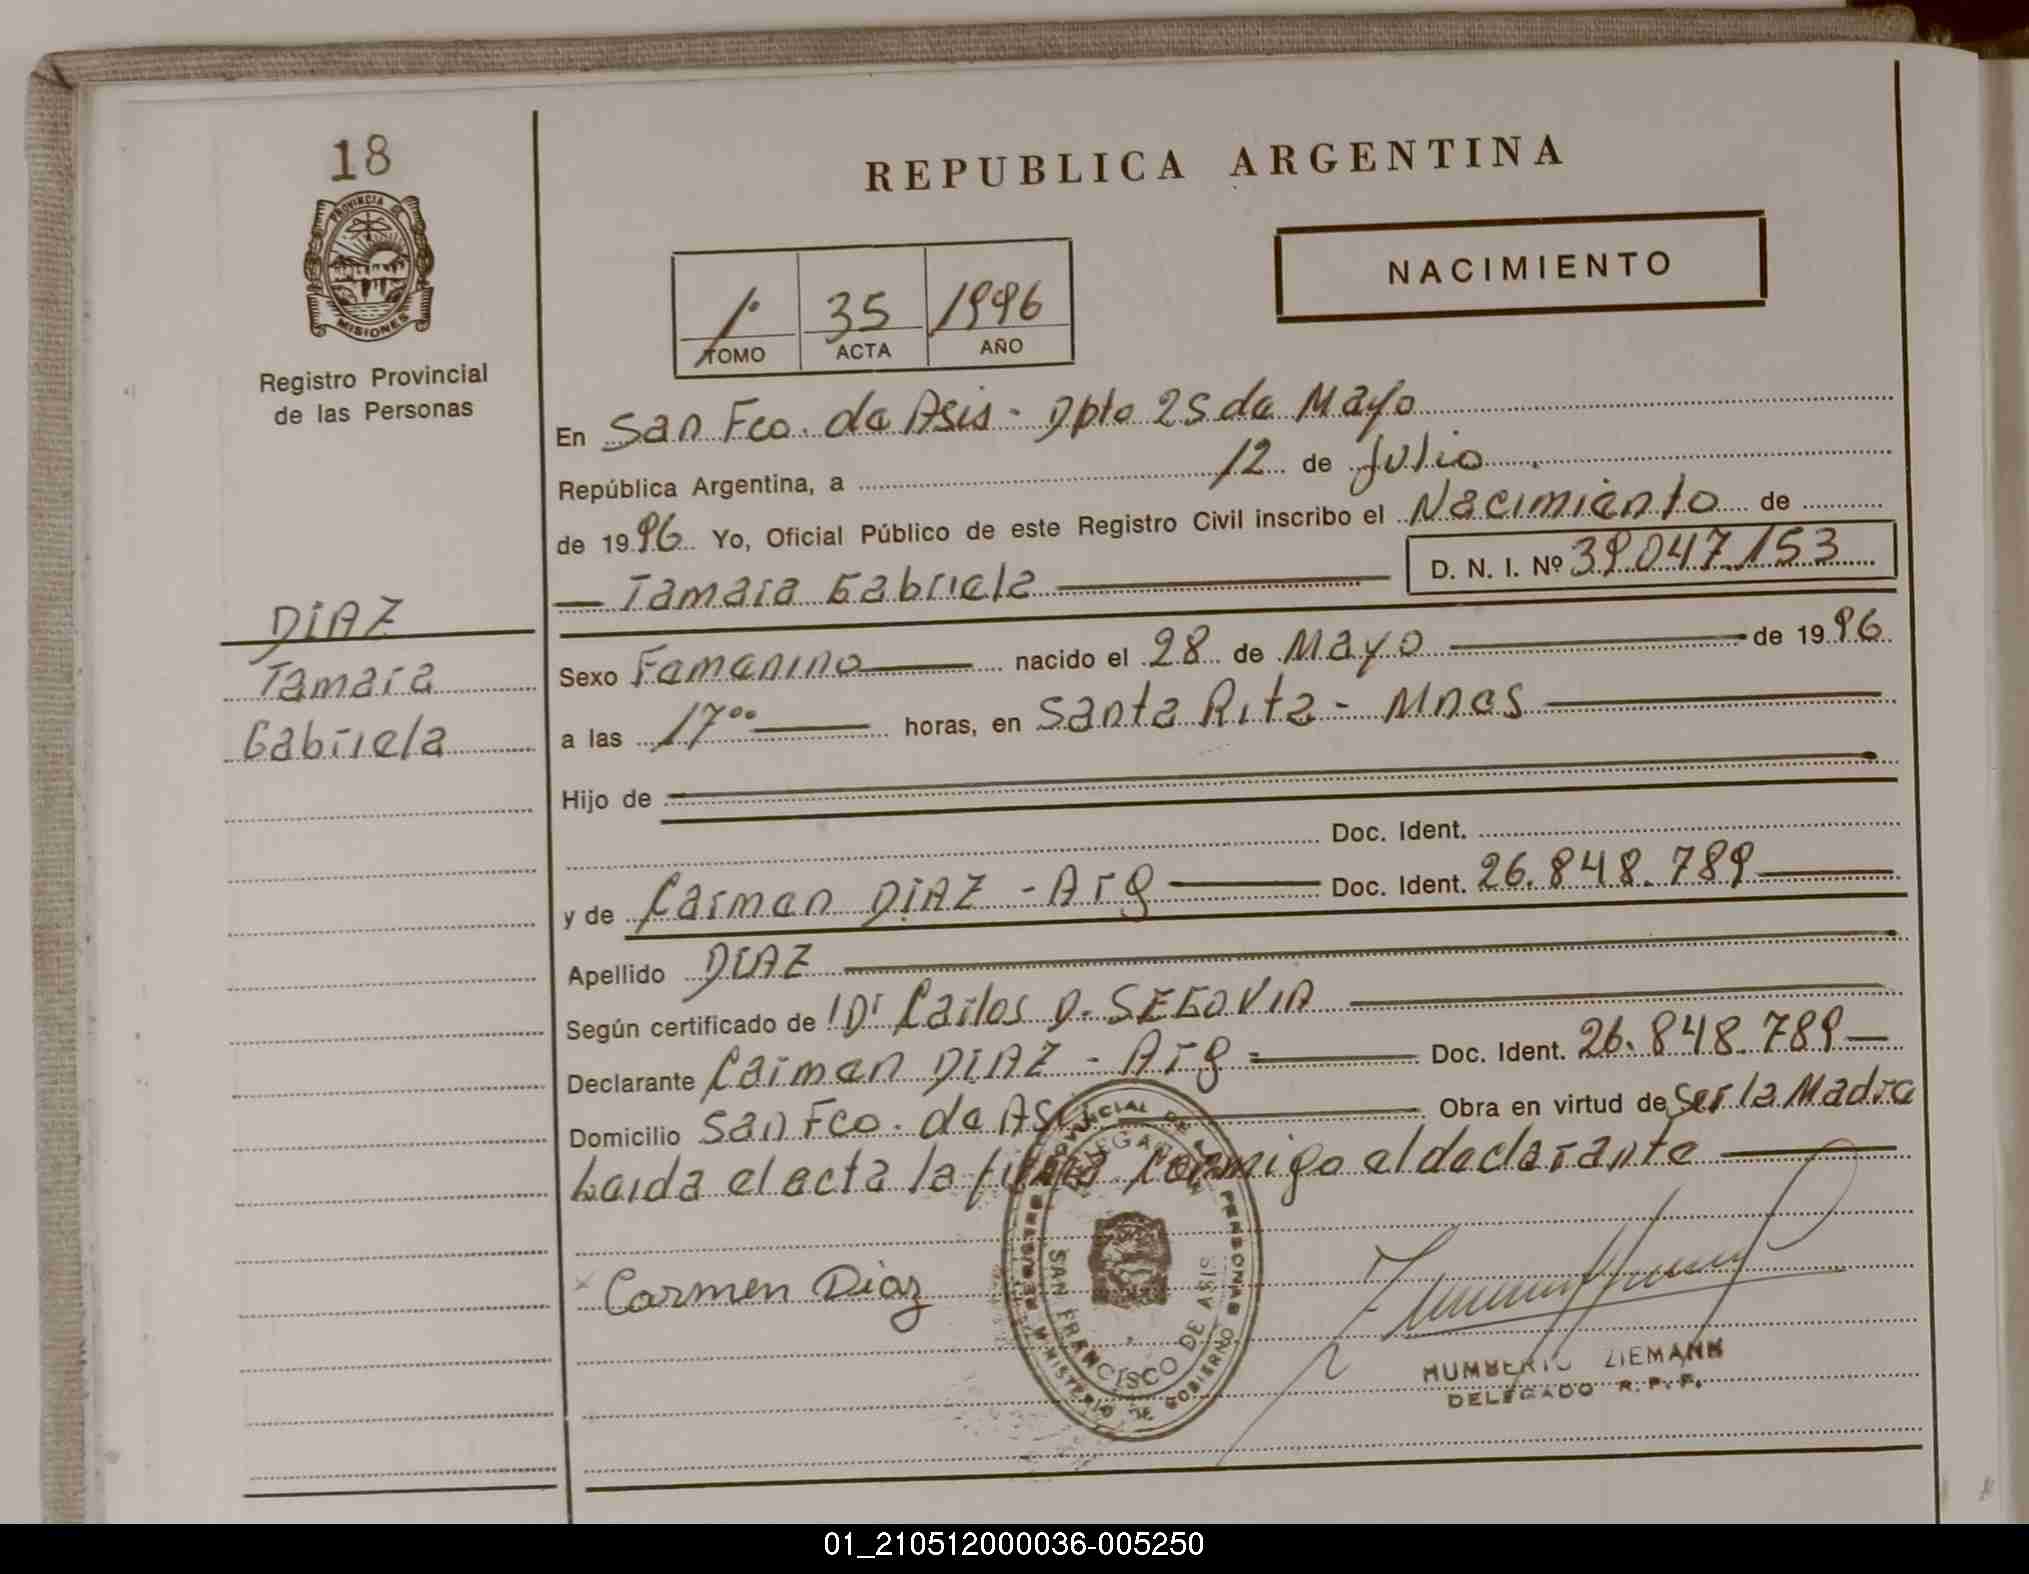 18
PROVINCIA DE
MISIONES
Registro Provincial
de las Personas
DIAZ
Tamara
Gabriela
REPUBLICA ARGENTINA
NACIMIENTO
1º 35 1996
TOMO ACTA AÑO
En San Fco. de Asis - Dpto 25 de Mayo
República Argentina, a 12 de Julio
de 1996 Yo, Oficial Público de este Registro Civil inscribo el Nacimiento de
Tamara Gabriela D. N. I. Nº 39.047.153
Sexo Femenino nacido el 28 de Mayo de 1996
a las 17⁰⁰ horas, en Santa Rita - Mnes
Hijo de
Doc. Ident.
y de Carmen DIAZ - Arg Doc. Ident. 26.848.789
Apellido DIAZ
Según certificado de Dr Carlos D. SEGOVIA
Declarante Carmen DIAZ - Arg = Doc. Ident. 26.848.789
Domicilio San Fco. de Asis Obra en virtud de Ser la Madre
Leida el acta la firma conmigo el declarante
Carmen Diaz
REGISTRO PROVINCIAL DE PERSONAS
DELEGACION
SAN FRANCISCO DE ASIS
MINISTERIO DE GOBIERNO
HUMBERTO ZIEMANN
DELEGADO R. P. P.
01_210512000036-005250